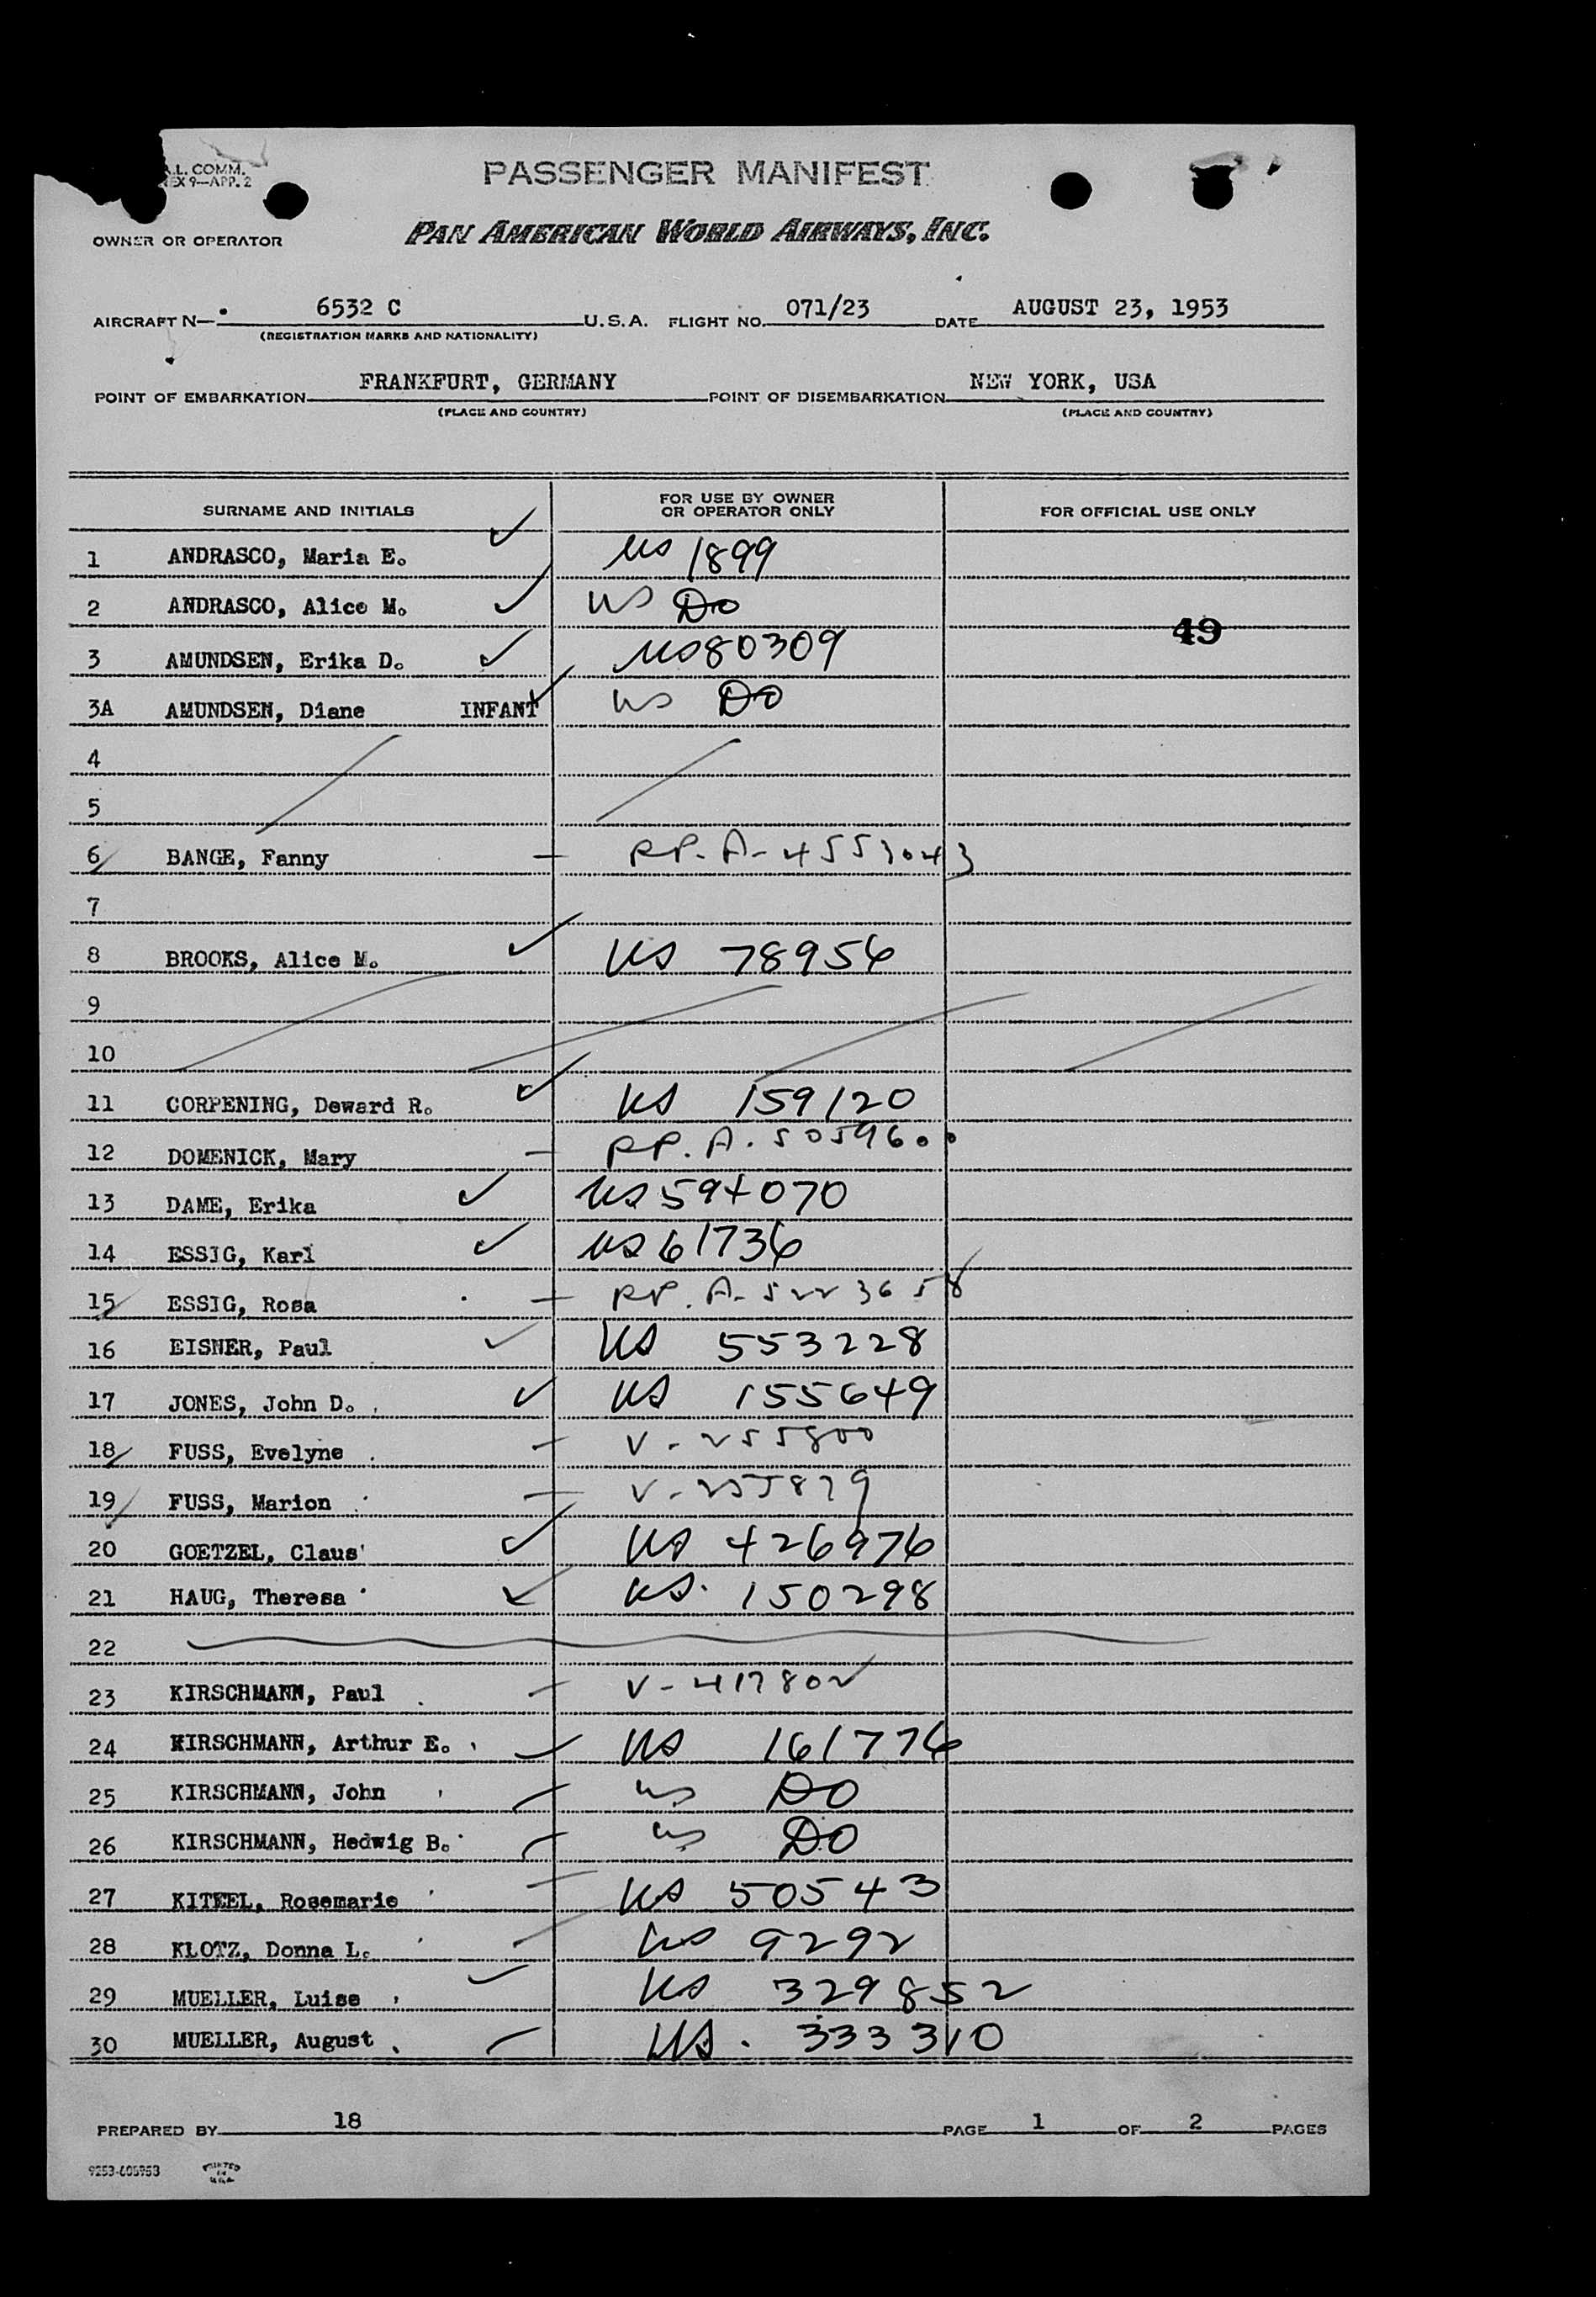 A.L. COMM.
EX 9—APP. 2
PASSENGER MANIFEST
OWNER OR OPERATOR PAN AMERICAN WORLD AIRWAYS, INC.
AIRCRAFT N— 6532 C U.S.A. FLIGHT NO. 071/23 DATE AUGUST 23, 1953
(REGISTRATION MARKS AND NATIONALITY)
POINT OF EMBARKATION FRANKFURT, GERMANY POINT OF DISEMBARKATION NEW YORK, USA
(PLACE AND COUNTRY) (PLACE AND COUNTRY)
SURNAME AND INITIALS FOR USE BY OWNER OR OPERATOR ONLY FOR OFFICIAL USE ONLY
1 ANDRASCO, Maria E. US 1899
2 ANDRASCO, Alice M. US DO
49
3 AMUNDSEN, Erika D. US 80309
3A AMUNDSEN, Diane INFANT US DO
4
5
6 BANGE, Fanny RP. A-4553043
7
8 BROOKS, Alice M. US 78956
9
10
11 CORPENING, Deward R. US 159120
12 DOMENICK, Mary RP. A. 5059600
13 DAME, Erika US 594070
14 ESSIG, Karl US 61736
15 ESSIG, Rosa RP. A-5223658
16 EISNER, Paul US 553228
17 JONES, John D. US 155649
18 FUSS, Evelyne V-255800
19 FUSS, Marion V-255879
20 GOETZEL, Claus US 426976
21 HAUG, Theresa US. 150298
22
23 KIRSCHMANN, Paul V-417802
24 KIRSCHMANN, Arthur E. US 161776
25 KIRSCHMANN, John US DO
26 KIRSCHMANN, Hedwig B. US DO
27 KITEEL, Rosemarie US 50543
28 KLOTZ, Donna L. US 9292
29 MUELLER, Luise US 329852
30 MUELLER, August US. 333310
PREPARED BY 18 PAGE 1 OF 2 PAGES
PRINTED
IN
U.S.A.